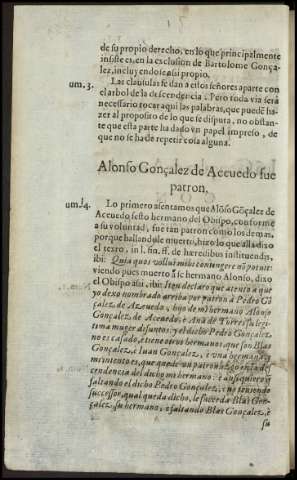 de su propio derecho, en lo que principalmente
insiste es, en la exclusion de Bartolome Gonça-
lez, incluyendose assi propio.
um. 3. Las clausulas se dan a essos señores aparte con
el arbol de la descendencia: Pero toda via serà
necessario tocar aqui las palabras, que puedẽ ha-
zer al proposito de lo que se disputa, no obstan-
te que esta parte ha dado vn papel impresso, de
que no se ha de repetir cosa alguna.
Alonso Gonçalez de Acevedo fue
patron.
um. 4. Lo primero assentamos que Alõso Gõçalez de
Acevedo sesto hermano del Obispo, conforme
a su voluntad, fue tan patron como los demas,
porque hallandole muerto, hizo lo que alla dixo
el texto, in l. fin. ff. de hæredibus instituendis,
ibi: Quia quos volui mihi contingere nõ potui:
viendo pues muerto a se hermano Alonso, dixo
el Obispo assi, ibi: Iten declaro que atento a que
yo dexo nombrado arriba por patron à Pedro Gõ
çalez, de Azevedo, hijo de mi hermano Alonso
Gonçalez, de Acevedo, è Ana de Torres su legi-
tima muger difuntos: y el dicho Pedro Gonçalez
no es casado, è tiene otros hermanos, que son Blas
Gonçalez, è Iuan Gonçalez, è vna hermana, y
mi intento es, que quede vn patronazgo en la des
cendencia del dicho mi hermano: è ansi quiero q̃
faltando el dicho Pedro Gonçalez, è no teniendo
successor, qual queda dicho, le suceda Blas Gon-
çalez, su hermano, è faltando Blas Gonçalez, è
su